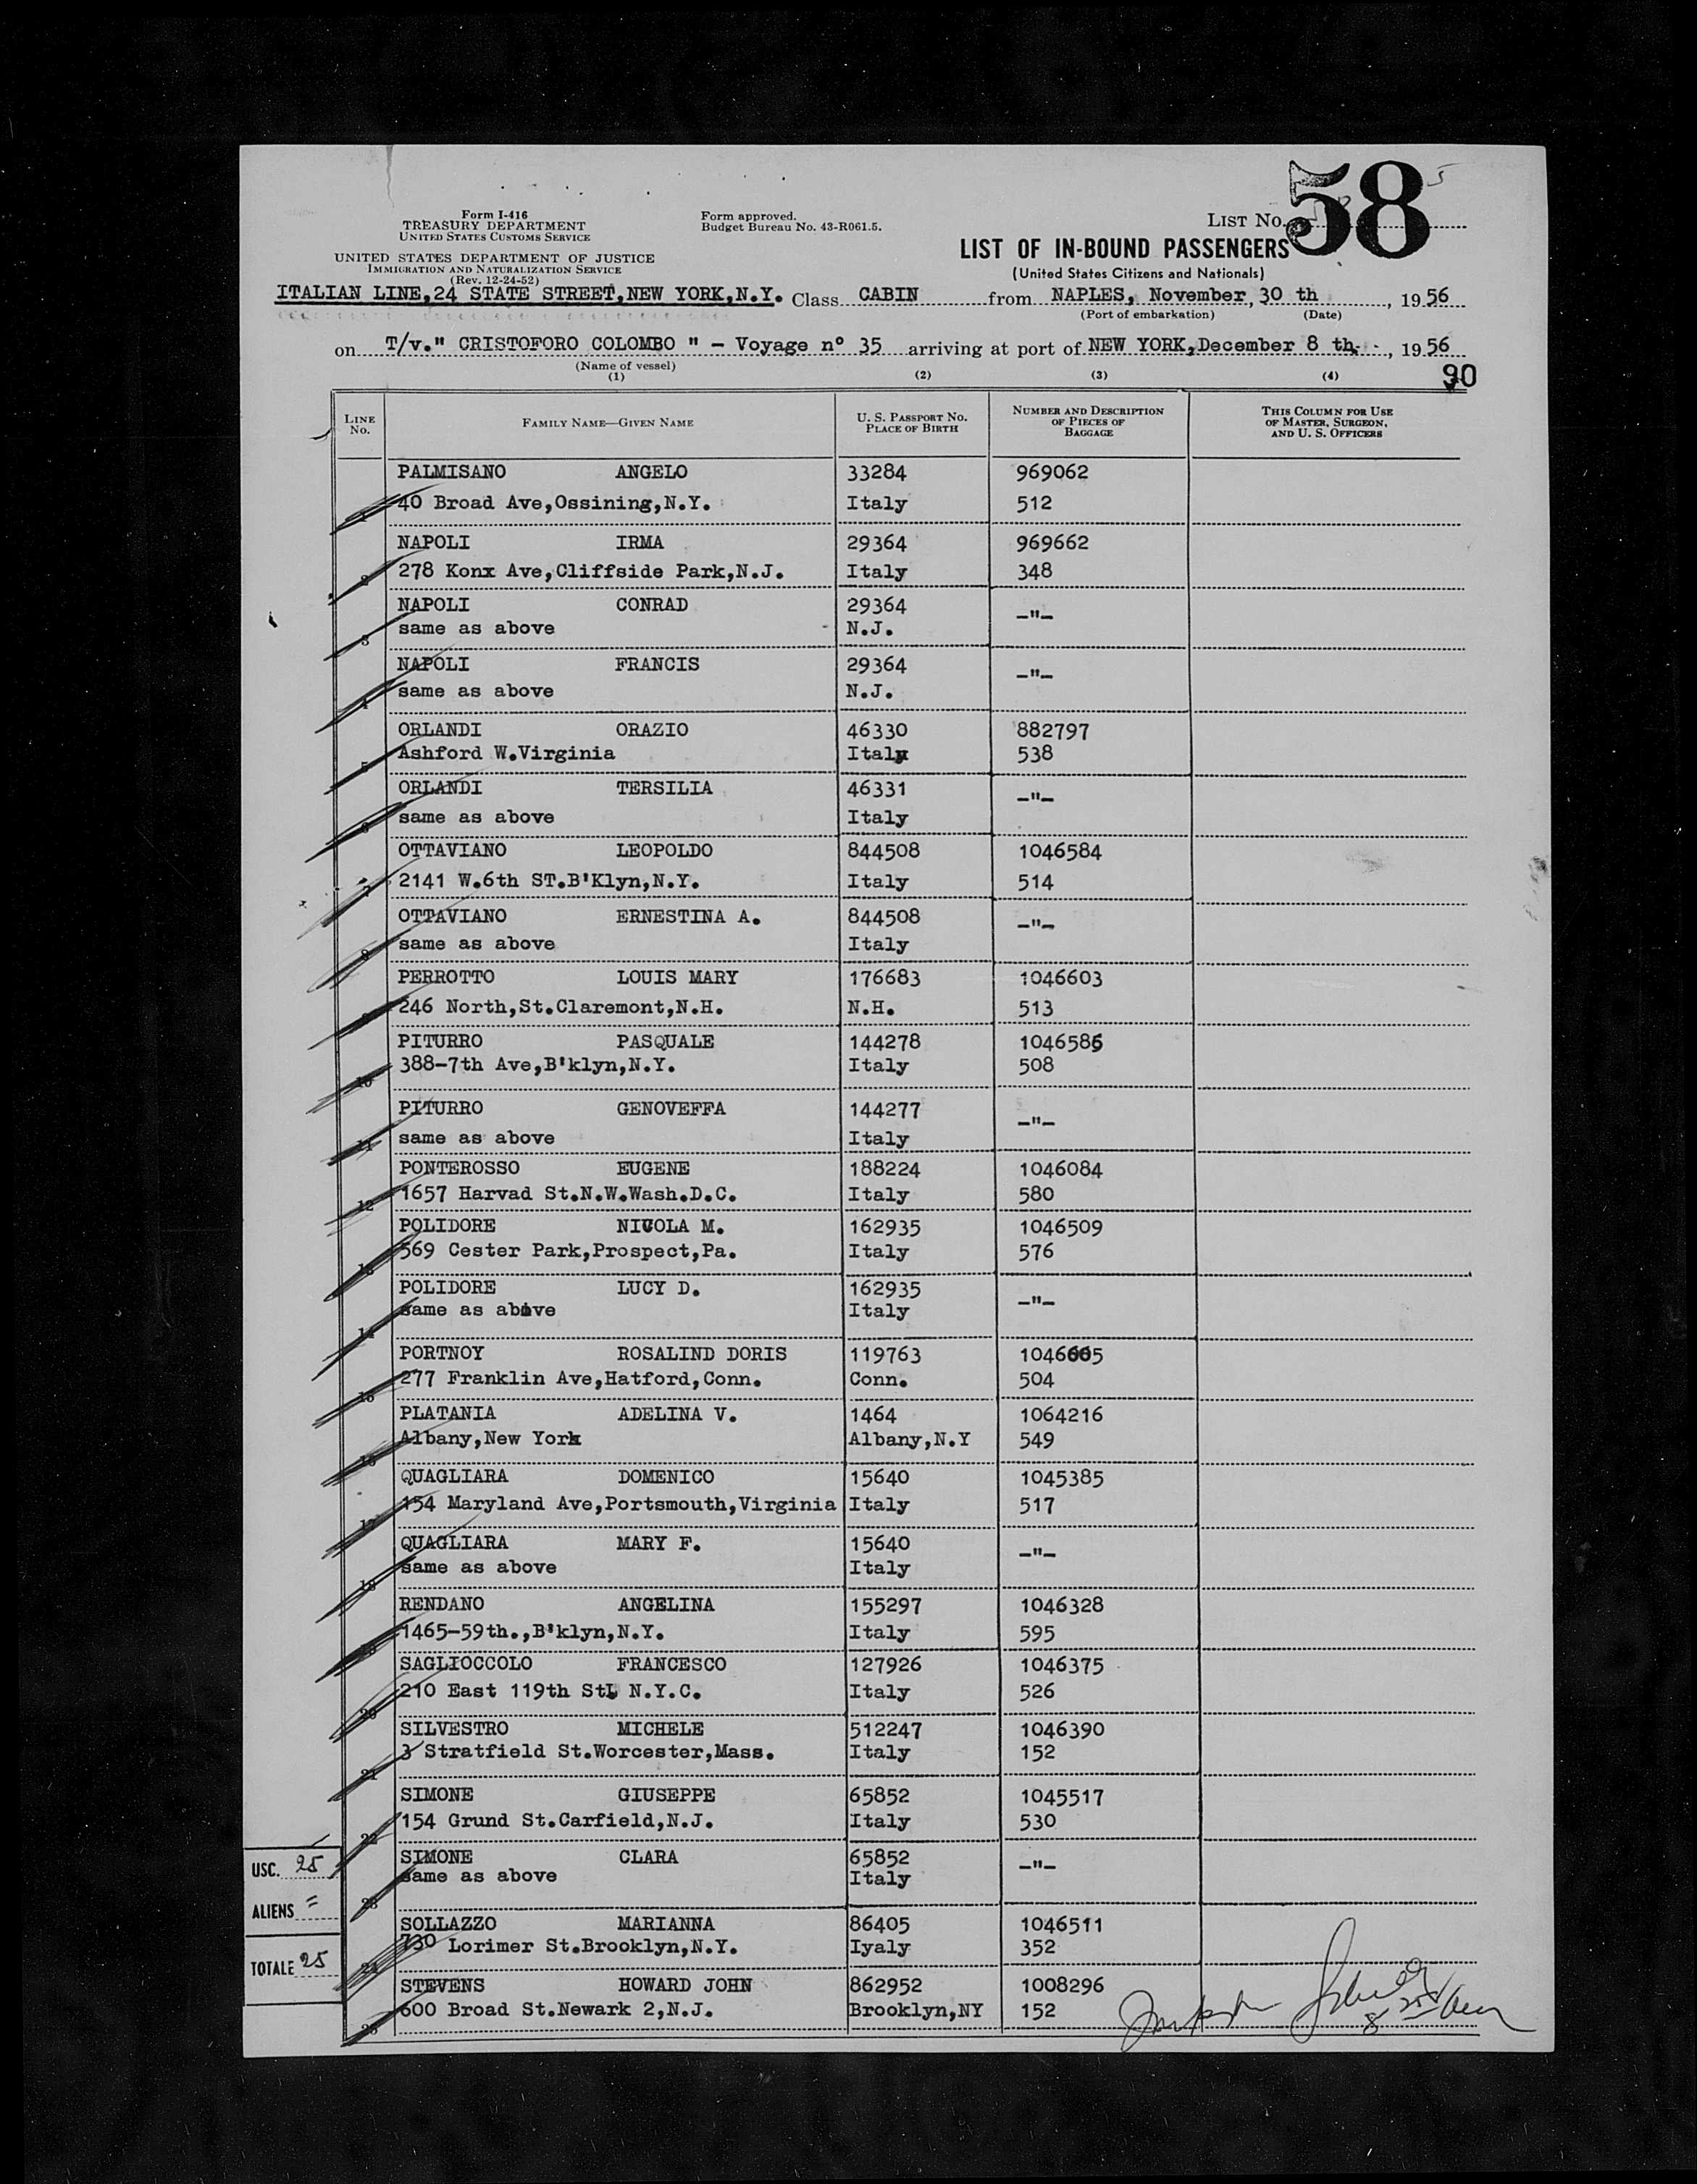 58
Form I-416
TREASURY DEPARTMENT
UNITED STATES CUSTOMS SERVICE
Form approved.
Budget Bureau No. 43-R061.5.
LIST NO.
LIST OF IN-BOUND PASSENGERS
(United States Citizens and Nationals)
UNITED STATES DEPARTMENT OF JUSTICE
IMMIGRATION AND NATURALIZATION SERVICE
(Rev. 12-24-52)
ITALIAN LINE,24 STATE STREET,NEW YORK,N.Y. Class CABIN from NAPLES, November, 30 th, 1956
(Port of embarkation) (Date)
on T/v." CRISTOFORO COLOMBO " - Voyage n° 35 arriving at port of NEW YORK,December 8 th, 1956
(Name of vessel)
(1) (2) (3) (4) 90
LINE No. FAMILY NAME—GIVEN NAME U. S. PASSPORT NO. PLACE OF BIRTH NUMBER AND DESCRIPTION OF PIECES OF BAGGAGE THIS COLUMN FOR USE OF MASTER, SURGEON, AND U. S. OFFICERS
PALMISANO ANGELO 33284 969062
1 40 Broad Ave,Ossining,N.Y. Italy 512
NAPOLI IRMA 29364 969662
2 278 Konx Ave,Cliffside Park,N.J. Italy 348
NAPOLI CONRAD 29364 -"-
3 same as above N.J.
NAPOLI FRANCIS 29364 -"-
4 same as above N.J.
ORLANDI ORAZIO 46330 882797
5 Ashford W.Virginia Italy 538
ORLANDI TERSILIA 46331 -"-
6 same as above Italy
OTTAVIANO LEOPOLDO 844508 1046584
7 2141 W.6th ST.B'Klyn,N.Y. Italy 514
OTTAVIANO ERNESTINA A. 844508 -"-
8 same as above Italy
PERROTTO LOUIS MARY 176683 1046603
9 246 North,St.Claremont,N.H. N.H. 513
PITURRO PASQUALE 144278 1046586
10 388-7th Ave,B'klyn,N.Y. Italy 508
PITURRO GENOVEFFA 144277 -"-
11 same as above Italy
PONTEROSSO EUGENE 188224 1046084
12 1657 Harvad St.N.W.Wash.D.C. Italy 580
POLIDORE NICOLA M. 162935 1046509
13 569 Cester Park,Prospect,Pa. Italy 576
POLIDORE LUCY D. 162935 -"-
14 same as abive Italy
PORTNOY ROSALIND DORIS 119763 1046605
15 277 Franklin Ave,Hatford,Conn. Conn. 504
PLATANIA ADELINA V. 1464 1064216
16 Albany,New York Albany,N.Y 549
QUAGLIARA DOMENICO 15640 1045385
17 154 Maryland Ave,Portsmouth,Virginia Italy 517
QUAGLIARA MARY F. 15640 -"-
18 same as above Italy
RENDANO ANGELINA 155297 1046328
19 1465-59th.,B'klyn,N.Y. Italy 595
SAGLIOCCOLO FRANCESCO 127926 1046375
20 210 East 119th St. N.Y.C. Italy 526
SILVESTRO MICHELE 512247 1046390
21 3 Stratfield St.Worcester,Mass. Italy 152
SIMONE GIUSEPPE 65852 1045517
22 154 Grund St.Carfield,N.J. Italy 530
SIMONE CLARA 65852 -"-
23 same as above Italy
SOLLAZZO MARIANNA 86405 1046511
24 730 Lorimer St.Brooklyn,N.Y. Iyaly 352
STEVENS HOWARD JOHN 862952 1008296
25 600 Broad St.Newark 2,N.J. Brooklyn,NY 152
USC. 25
ALIENS =
TOTALE 25